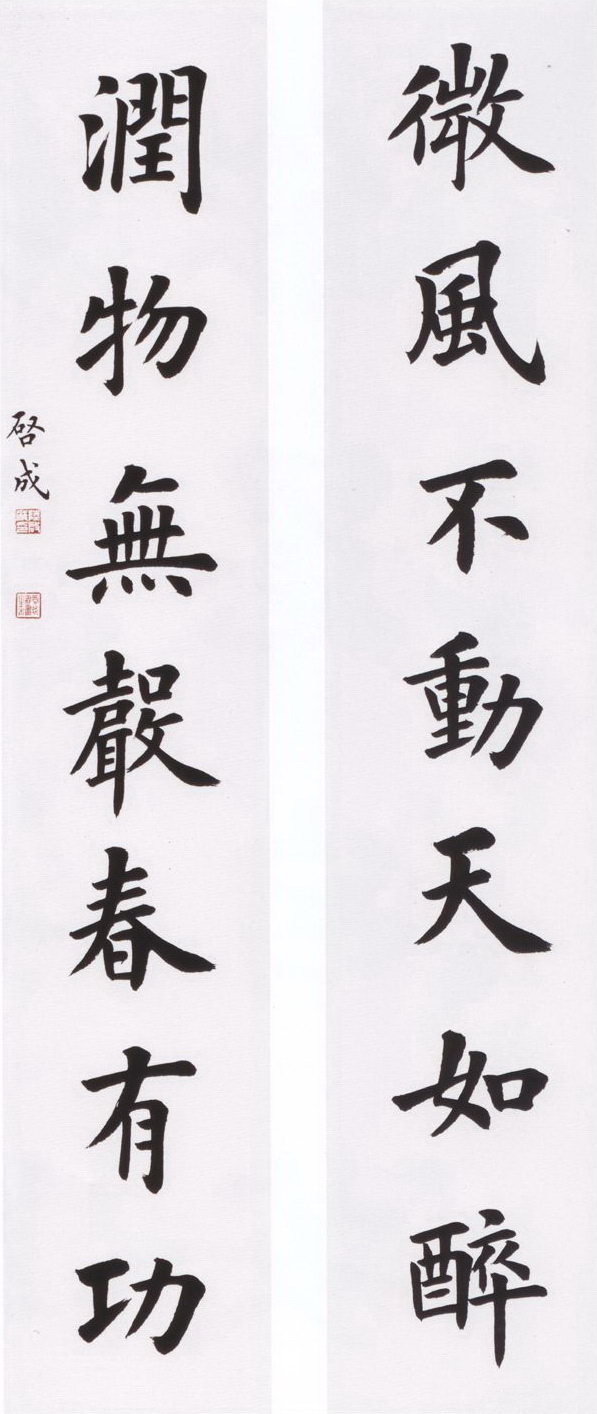 微風不動天如醉
潤物無聲春有功
啓成